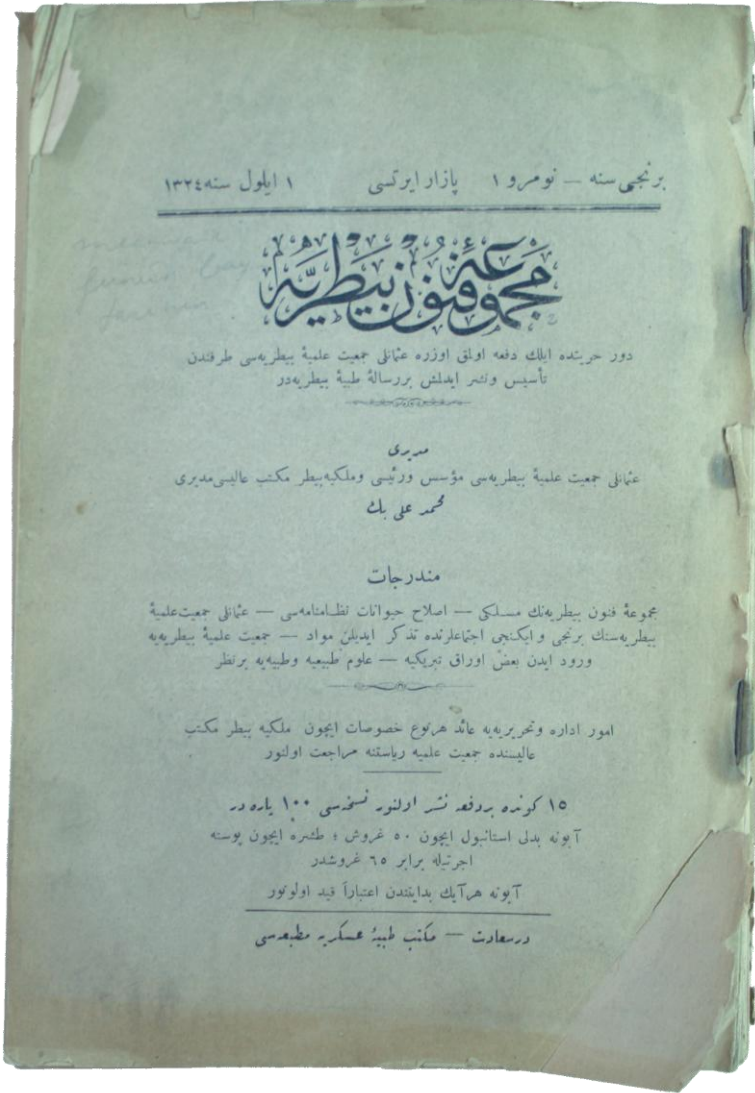 برنجی سنه — نومرو ١ پازار ایرتسی ١ ایلول سنه ١٣٢٤
مجموعهٔ فنون بیطریه
دور حریتده ایلك دفعه اولمق اوزره عثمانلی جمعیت علمیهٔ بیطریه‌سی طرفندن
تأسیس ونشر ایدلمش بر رسالهٔ طبیهٔ بیطریه‌در
مدیری
عثمانلی جمعیت علمیهٔ بیطریه‌سی مؤسس ورئیسی وملكیه بیطر مكتب عالیسی مدیری
محمد علی بك
مندرجات
مجموعهٔ فنون بیطریه‌نك مسلكی — اصلاح حیوانات نظامنامه‌سی — عثمانلی جمعیت علمیهٔ
بیطریه‌سنك برنجی وایكنجی اجتماعلرنده تذكر ایدیلن مواد — جمعیت علمیهٔ بیطریه‌یه
ورود ایدن بعض اوراق تبریكیه — علوم طبیعیه وطبیه‌یه برنظر
امور اداره وتحریریه‌یه عائد هرنوع خصوصات ایچون ملكیه بیطر مكتب
عالیسنده جمعیت علمیه ریاستنه مراجعت اولنور
١٥ كونده بردفعه نشر اولنور نسخه‌سی ١٠٠ پاره در
آبونه بدلی استانبول ایچون ٥٠ غروش ؛ طشره ایچون پوسته
اجرتیله برابر ٦٥ غروشدر
آبونه هرآیك بدایتندن اعتباراً قید اولونور
درسعادت — مكتب طبیهٔ عسكریه مطبعه‌سی